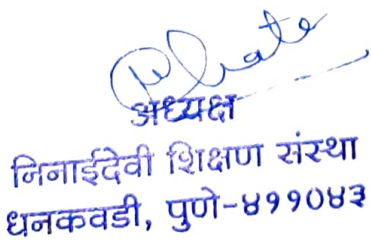 अध्यक्ष
निनाईदेवी शिक्षण संस्था
धनकवडी, पुणे-४११०४३